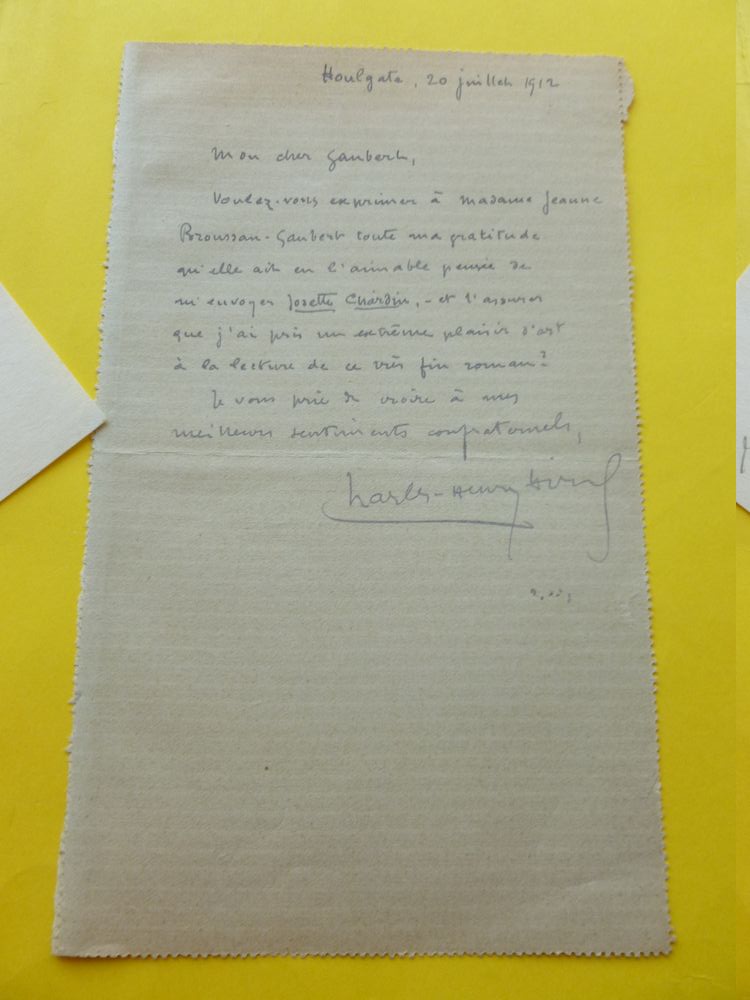 Houlgate, 20 juillet 1912
Mon cher Gaubert,
Voulez-vous exprimer à Madame Jeanne
Broussan-Gaubert toute ma gratitude
qu'elle ait eu l'aimable pensée de
m'envoyer Josette Chardin, - et l'assurer
que j'ai pris un extrême plaisir d'art
à la lecture de ce très fin roman?
Je vous prie de croire à mes
meilleurs sentiments confraternels,
Charles-Henry Hirsch